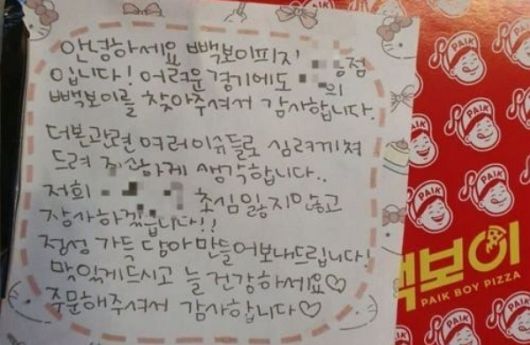 안녕하세요 빽보이피자 점
입니다! 어려운 경기에도 의
빽보이를 찾아주셔서 감사합니다.
더본관련 여러이슈들로 심려끼쳐
드려 죄산하게 생각합니다..
저희 초심 잃지않고
장사하겠습니다!!
정성 가득 담아만들어보내드립니다!
맛있게드시고 늘 건강하세요♡
주문해주셔서 감사합니다♡
PAIK
PAIK
PAIK
PAIK
백보이
PAIK BOY PIZZA